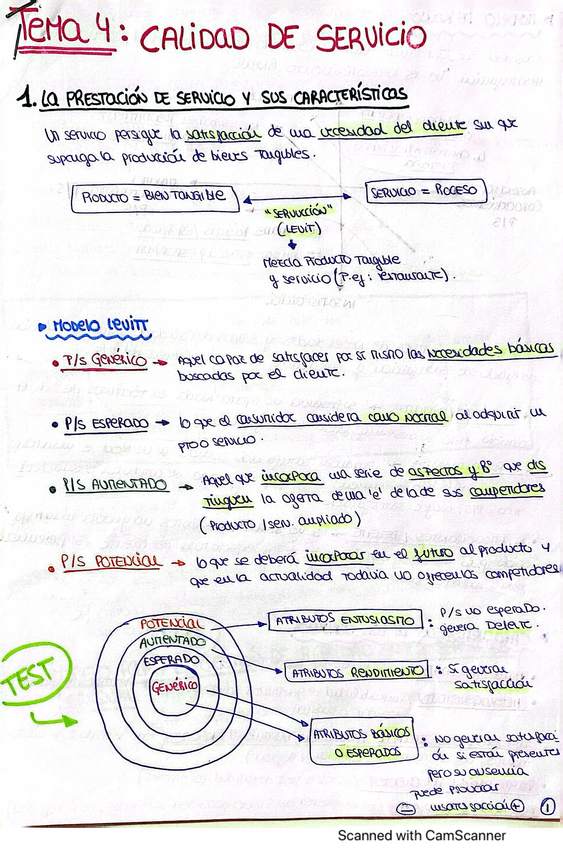 Tema 4: CALIDAD DE SERVICIO
1. La PRESTACIÓN DE SERVICIO Y SUS CARACTERÍSTICAS
Un servicio persigue la satisfacción de una necesidad del cliente sin que
suponga la producción de bienes tangibles.
PRODUCTO = BIEN TANGIBLE
SERVICIO = PROCESO
"SERVUCCIÓN"
(LEVIT)
Mezcla Producto Tangible
y servicio (P.ej: restaurante).
MODELO LEVITT
• P/S GENÉRICO → Aquel capaz de satisfacer por sí mismo las necesidades básicas
buscadas por el cliente.
• P/S ESPERADO → lo que el consumidor considera como normal al adquirir un
pto o servicio.
• P/S AUMENTADO → Aquel que incorpora una serie de aspectos y Bº que dis
tinguen la oferta de una 'e' de la de sus competidores
(Producto / serv. ampliado)
• P/S POTENCIAL → lo que se deberá incorporar en el futuro al producto y
que en la actualidad todavía no ofrecen los competidores
POTENCIAL
AUMENTADO
ESPERADO
GENÉRICO
TEST
ATRIBUTOS ENTUSIASMO : P/s no esperado.
genera Deleite.
ATRIBUTOS RENDIMIENTO : Sí generan
satisfacción
ATRIBUTOS BÁSICOS
O ESPERADOS : No generan satisfacci
ón si están presentes
pero su ausencia
puede provocar
insatisfacción
1
Scanned with CamScanner